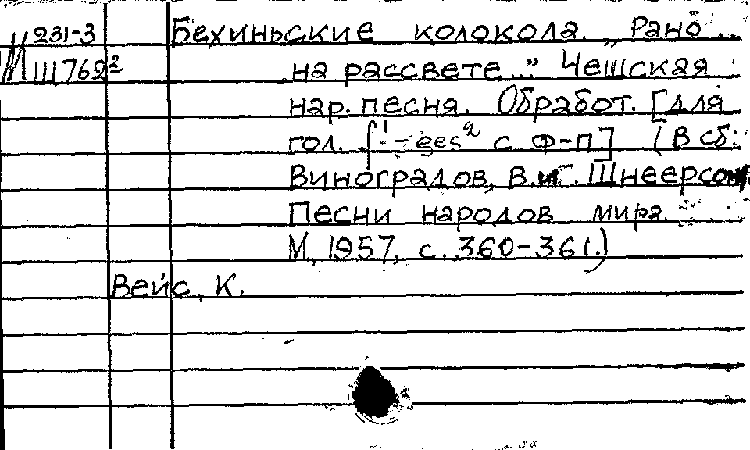 231-3 Бехиньские колокола. „Рано
М III 762² на рассвете..." Чешская
нар. песня. Обработ. [для
гол. f¹-ges² с ф-п] (В сб.:
Виноградов, В. и Г. Шнеерсон.
Песни народов мира.
М., 1957, с. 360-361.)
Вейс, К.